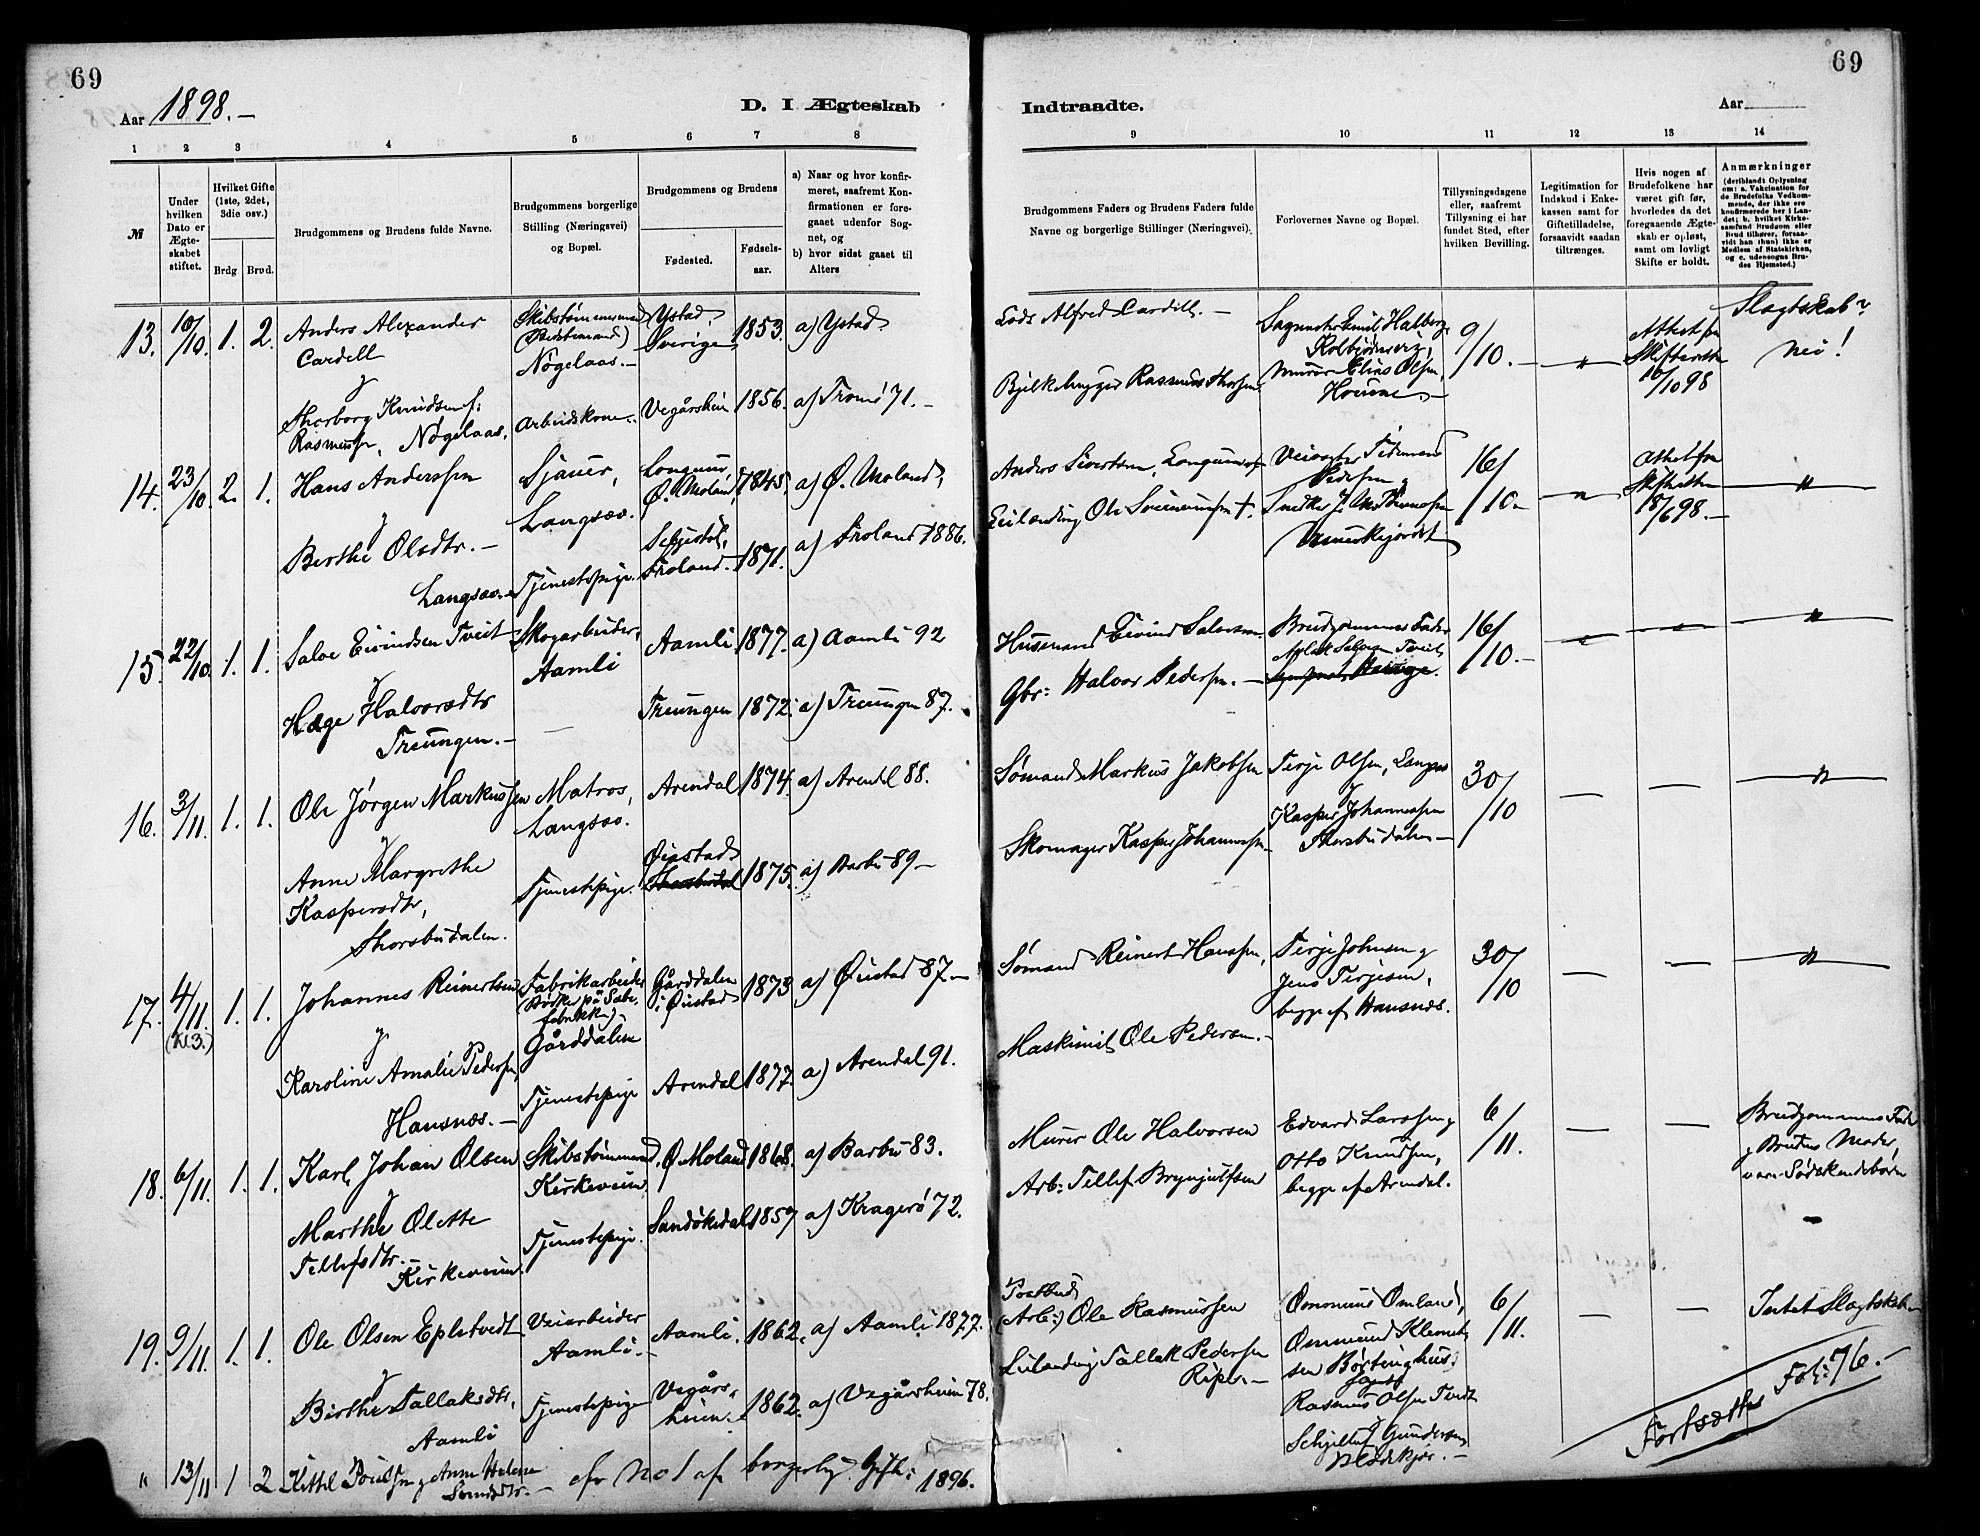 69
Aar 1898.—
D. I Ægteskab
1 2 3 4 5 6 7 8
№
Under hvilken Dato er Ægteskabet stiftet.
Hvilket Gifte (1ste, 2det, 3die osv.)
Brdg Brud.
Brudgommens og Brudens fulde Navne.
Brudgommens borgerlige Stilling (Næringsvei) og Bopæl.
Brudgommens og Brudens
Fødested.
Fødselsaar.
a) Naar og hvor konfirmeret, saafremt Konfirmationen er foregaaet udenfor Sognet, og
b) hvor sidst gaaet til Alters
13. 10/10. 1. 2. Anders Alexander Cardell
Nøgelaas.—
Ystad, Sverige 1853. a) Ystad
Thorborg Knudsen f. Rasmussen, Nøgelaas.
Arbeidskone.
Vegårsheien 1856. a) Tromø 71.—
14. 23/10. 2. 1. Hans Anderssen
Sjauer, Langsæv.
Longum, Ø. Moland, 1845. a) Ø. Moland,
& Berthe Olsdtr.— Langsæv.
Tjenestepige.
Froland.— 1871. a) Froland 1886.
15. 22/10. 1. 1. Salve Eivindsen Tveit
Skogarbeider, Aamli
Aamli. 1877. a) Aamli 92
& Hæge Halvorsdtr Treungen.—
—
Treungen 1872. a) Treungen 87.
16. 3/11. 1. 1. Ole Jørgen Markussen
Matros, Langsæv.
Arendal 1874. a) Arendl 88.
& Anne Margrethe Kaspersdtr, Thorsbudalen.
Tjenestepige.
Øiestad 1875. a) Barbu 89—
17. 4/11. (kl 3.) 1. 1. Johannes Reinertsen
Fabrikarbeider
Gårddalen
Gårddalen i Øiestad 1873 a) Øiestad 87.—
& Karoline Amalie Pedersen, Hansnæs.—
Tjenestepige
Arendal 1877. a) Arendal 91.
18. 6/11. 1. 1. Karl Johan Olsen
Skibstømmermand, Kirkeveien
Ø. Moland 1868. a) Barbu 83.
& Marthe Olette Tellefsdtr.— Kirkeveien.
Tjenestepige.
Sandøkedal 1857 a) Kragerø 72.
19. 9/11. 1. 1. Ole Olsen Epletvedt
Veiarbeider Aamli.—
Aamli. 1862. a) Aamli 1877.
& Birthe Tallaksdtr, Aamli
Tjenestepige
Vegårsheien. 1862. a) Vegårsheien 78.
" 13/11 1 2 Kittil Poulsen & Anne Helene
— cfr No 1 af borgerlig Gifte: 1896.
69
Indtraadte.
Aar
9 10 11 12 13 14
Brudgommens Faders og Brudens Faders fulde Navne og borgerlige Stillinger (Næringsvei).
Forlovernes Navne og Bopæl.
Tillysningsdagene eller, saafremt Tillysning ei har fundet Sted, efter hvilken Bevilling.
Legitimation for Indskud i Enkekassen samt for Giftetilladelse, forsaavidt saadan tiltrænges.
Hvis nogen af Brudefolkene har været gift før, hvorledes da det foregaaende Ægteskab er opløst, samt om lovligt Skifte er holdt.
Anmærkninger (deriblandt Oplysning om: a. Vakcination for de Brudefolks Vedkommende, der ikke ere konfirmerede her i Landet; b. hvilket Kirkesamfund Brudgom eller Brud tilhører, forsaavidt han (hun) ikke er Medlem af Statskirken, og c. udensogns Brudes Hjemsted.)
Lods Alfred Cardell.—
9/10.—
"
Attest fra Skifteretten 10/10 98
Slægtskab?
Nei!
Rasmus Thorsen
16/10.—
Attest fra Skifteretten 18/6 98.—
"
Husmand Eivind Salvesen
Brudgommens Fader
16/10.—
"
Gbr: Halvor Pedersen.—
Sømand Markus Jakobsen
Terje Olsen, Langsæv
& Kasper Johannessen Thorsbudalen—
30/10
— —
"
Skomager Kasper Johannessen
Sømand Reinert Hanssen,
Terje Johnsen & Jens Terjesen, begge af Hansnæs.
30/10
— —
"
Maskinist Ole Pedersen.—
Murer Ole Halvorsen
Edvard Larssen & Otto Knudsen, begge af Arendal.
6/11.
— —
Brudgommens Fader & Brudens Moder, vare Sødskendebørn
Arb: Tellef Brynjulfsen
Postbud (Arb:) Ole Rasmussen
Ommund Omland,
Ommund Klemetsen Børtinghus:
6/11.
— —
Intet Slægtskab
Leilænding Tallak Pedersen Ripe.—
Rasmus Olsen Tvedt
& Gundersen
Fortsættes Fol: 76.—